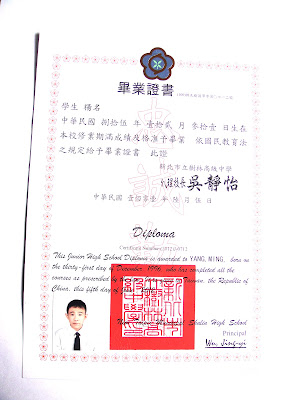 畢業證書
學生 楊名
中華民國 捌拾伍 年 壹拾貳 月 參拾壹 日生在
本校修業期滿成績及格准予畢業 依國民教育法
之規定給予畢業證書 此證
新北市立樹林高級中學
代理校長 吳靜怡
中華民國 壹佰零壹 年 陸 月 伍 日
Diploma
Certificate Number:
This Junior High School Diploma is awarded to YANG, MING, born on
the thirty-first day of December, 1996, who has completed all the
courses as prescribed by the Taiwan, the Republic of
China, this fifth day of
Shulin High School
Principal
Wu Jing-yi